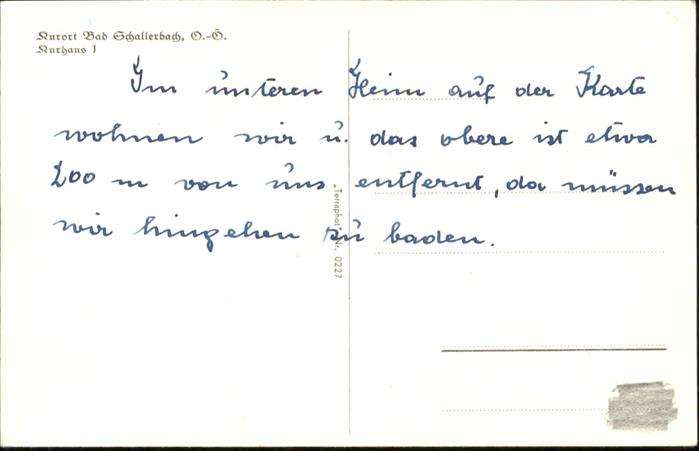 Kurort Bad Schallerbach, O.-Ö.
Kurhaus I
Im unteren Heim auf der Karte
wohnen wir u. das obere ist etwa
200 m von uns entfernt, da müssen
wir hingehen zu baden.
„Terraphot" Nr. 0227